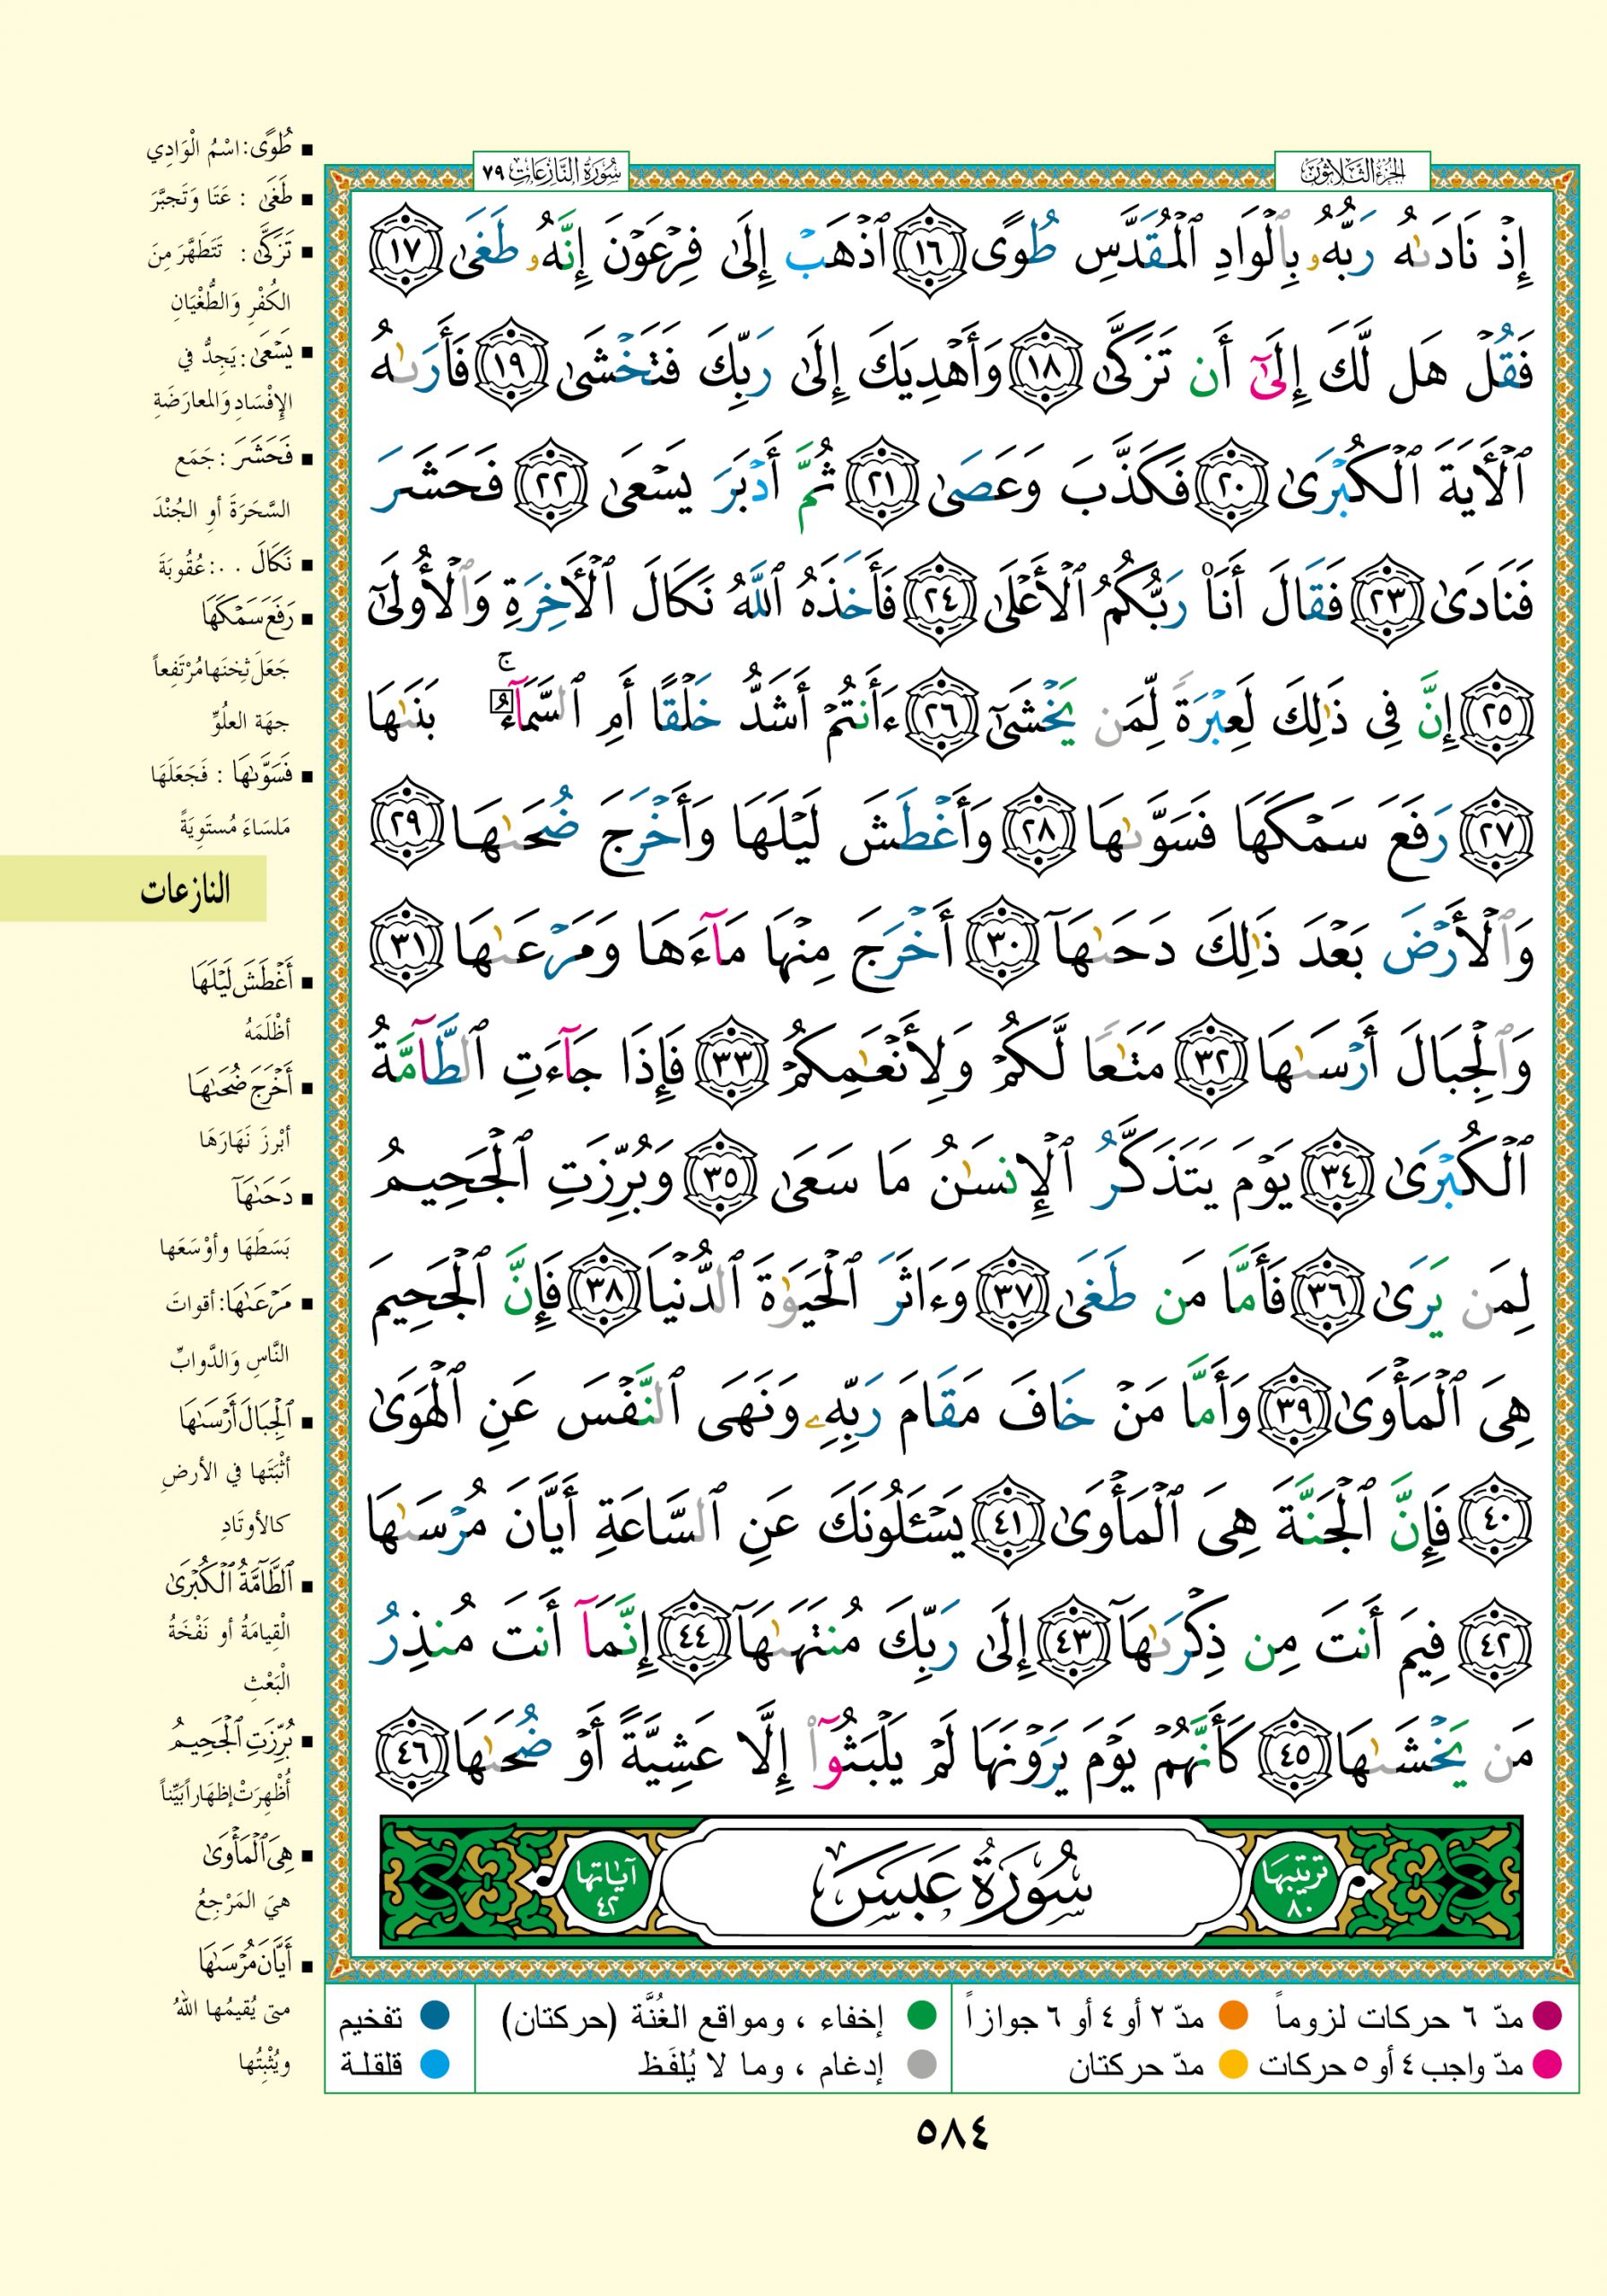 الجزء الثلاثون
سورة النازعات ٧٩
إِذْ نَادَىٰهُ رَبُّهُۥ بِٱلْوَادِ ٱلْمُقَدَّسِ طُوًى ١٦ ٱذْهَبْ إِلَىٰ فِرْعَوْنَ إِنَّهُۥ طَغَىٰ ١٧
فَقُلْ هَل لَّكَ إِلَىٰٓ أَن تَزَكَّىٰ ١٨ وَأَهْدِيَكَ إِلَىٰ رَبِّكَ فَتَخْشَىٰ ١٩ فَأَرَىٰهُ
ٱلْأٓيَةَ ٱلْكُبْرَىٰ ٢٠ فَكَذَّبَ وَعَصَىٰ ٢١ ثُمَّ أَدْبَرَ يَسْعَىٰ ٢٢ فَحَشَرَ
فَنَادَىٰ ٢٣ فَقَالَ أَنَا۠ رَبُّكُمُ ٱلْأَعْلَىٰ ٢٤ فَأَخَذَهُ ٱللَّهُ نَكَالَ ٱلْأٓخِرَةِ وَٱلْأُولَىٰٓ
٢٥ إِنَّ فِى ذَٰلِكَ لَعِبْرَةً لِّمَن يَخْشَىٰٓ ٢٦ ءَأَنتُمْ أَشَدُّ خَلْقًا أَمِ ٱلسَّمَآءُ ۚ بَنَىٰهَا
٢٧ رَفَعَ سَمْكَهَا فَسَوَّىٰهَا ٢٨ وَأَغْطَشَ لَيْلَهَا وَأَخْرَجَ ضُحَىٰهَا ٢٩
وَٱلْأَرْضَ بَعْدَ ذَٰلِكَ دَحَىٰهَآ ٣٠ أَخْرَجَ مِنْهَا مَآءَهَا وَمَرْعَىٰهَا ٣١
وَٱلْجِبَالَ أَرْسَىٰهَا ٣٢ مَتَٰعًا لَّكُمْ وَلِأَنْعَٰمِكُمْ ٣٣ فَإِذَا جَآءَتِ ٱلطَّآمَّةُ
ٱلْكُبْرَىٰ ٣٤ يَوْمَ يَتَذَكَّرُ ٱلْإِنسَٰنُ مَا سَعَىٰ ٣٥ وَبُرِّزَتِ ٱلْجَحِيمُ
لِمَن يَرَىٰ ٣٦ فَأَمَّا مَن طَغَىٰ ٣٧ وَءَاثَرَ ٱلْحَيَوٰةَ ٱلدُّنْيَا ٣٨ فَإِنَّ ٱلْجَحِيمَ
هِىَ ٱلْمَأْوَىٰ ٣٩ وَأَمَّا مَنْ خَافَ مَقَامَ رَبِّهِۦ وَنَهَى ٱلنَّفْسَ عَنِ ٱلْهَوَىٰ
٤٠ فَإِنَّ ٱلْجَنَّةَ هِىَ ٱلْمَأْوَىٰ ٤١ يَسْـَٔلُونَكَ عَنِ ٱلسَّاعَةِ أَيَّانَ مُرْسَىٰهَا
٤٢ فِيمَ أَنتَ مِن ذِكْرَىٰهَآ ٤٣ إِلَىٰ رَبِّكَ مُنتَهَىٰهَآ ٤٤ إِنَّمَآ أَنتَ مُنذِرُ
مَن يَخْشَىٰهَا ٤٥ كَأَنَّهُمْ يَوْمَ يَرَوْنَهَا لَمْ يَلْبَثُوٓا۟ إِلَّا عَشِيَّةً أَوْ ضُحَىٰهَا ٤٦
ترتيبها ٨٠
سُورَةُ عَبَسَ
آياتها ٤٢
▪ طُوًى: اسْمُ الْوَادِي
▪ طَغَىٰ : عَتَا وَتَجبَّرَ
▪ تَزَكَّىٰ : تَتَطَهَّرَ مِنَ
الكُفْرِ وَالطُّغْيَانِ
▪ يَسْعَىٰ: يَجِدُّ في
الإِفْسَادِ وَالمعارَضَةِ
▪ فَحَشَرَ : جَمَع
السَّحَرَةَ أو الجُنْدَ
▪ نَكَالَ ..: عُقُوبَةَ
▪ رَفَعَ سَمْكَهَا
جَعَلَ ثِخنَها مُرْتَفِعاً
جهَة العلُوِّ
▪ فَسَوَّىٰهَا : فَجَعَلَهَا
مَلسَاءَ مُستَوِيَةً
النازعات
▪ أَغْطَشَ لَيْلَهَا
أظْلَمَهُ
▪ أَخْرَجَ ضُحَىٰهَا
أبْرزَ نَهَارَهَا
▪ دَحَىٰهَآ
بَسَطَهَا وأوْسَعَها
▪ مَرْعَىٰهَا: أقواتَ
النَّاسِ وَالدَّوابِّ
▪ ٱلْجِبَالَ أَرْسَىٰهَا
أثْبَتَها في الأرضِ
كالأوتَادِ
▪ ٱلطَّآمَّةُ ٱلْكُبْرَىٰ
الْقِيامَةُ أو نَفْخَةُ
الْبَعْثِ
▪ بُرِّزَتِ ٱلْجَحِيمُ
أُظْهِرَتْ إظهَاراً بَيِّناً
▪ هِىَ ٱلْمَأْوَىٰ
هيَ المَرْجِعُ
▪ أَيَّانَ مُرْسَىٰهَا
متى يُقيمُها اللهُ
ويُثْبِتُها
مدّ ٦ حركات لزوماً ● مدّ ٢ أو ٤ أو ٦ جوازاً ● إخفاء ، ومواقع الغُنَّة (حركتان) ● تفخيم
مدّ واجب ٤ أو ٥ حركات ● مدّ حركتان ● إدغام ، وما لا يُلفَظ ● قلقلة
٥٨٤